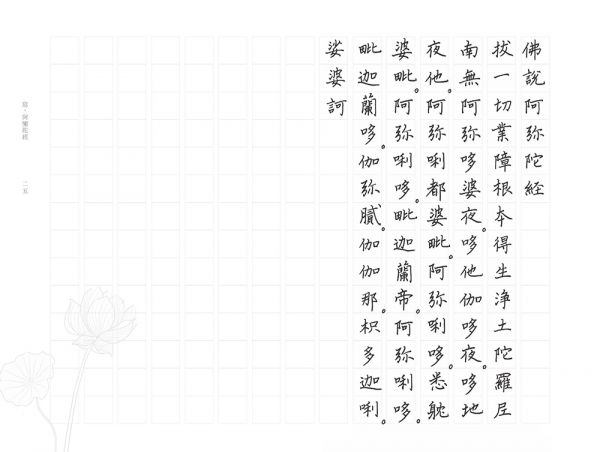 佛說阿弥陀経
拔一切業障根本得生浄土陀羅尼
南無阿弥哆婆夜。哆他伽哆夜。哆地
夜他。阿弥唎都婆毗。阿弥唎哆。悉躭
婆毗。阿弥唎哆。毗迦蘭帝。阿弥唎哆。
毗迦蘭哆。伽弥膩。伽伽那。枳多迦唎。
娑婆訶
阿彌陀經
二五